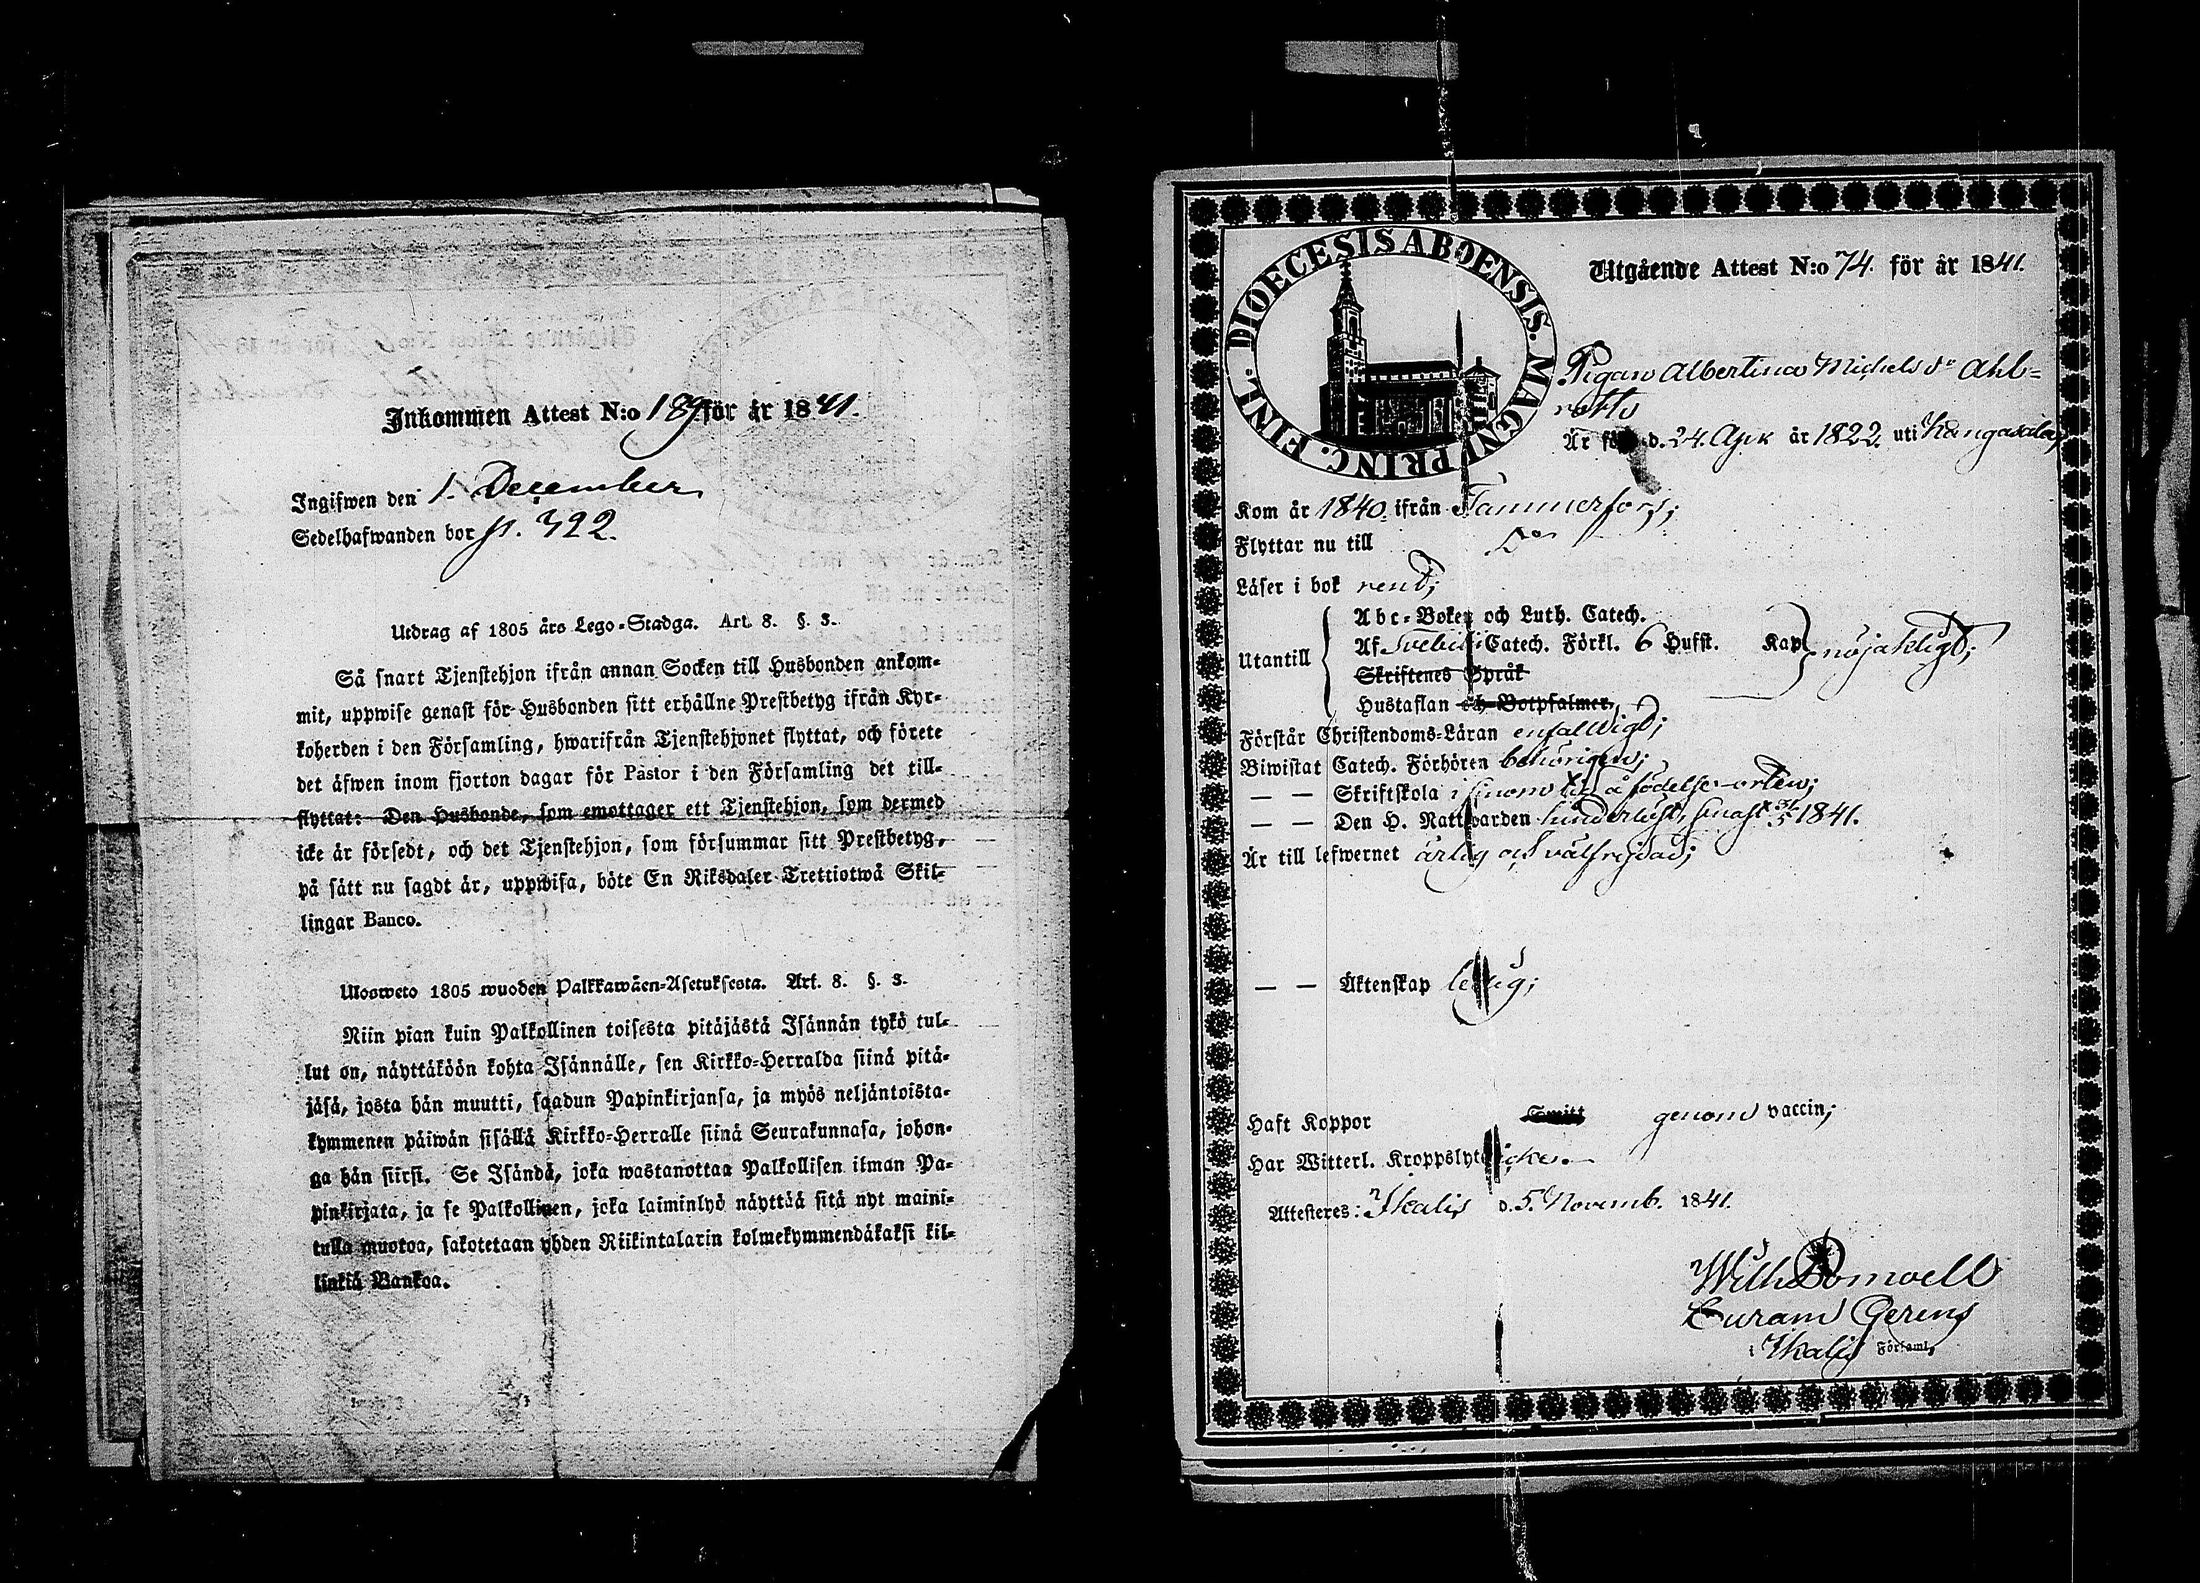 Inkommen Attest N:o 189 för år 1841.
Ingifwen den 1. December
Sedelhafwanden bor p. 322.
Utdrag af 1805 års Lego-Stadga. Art. 8. §. 3.
Så snart Tjenstehjon ifrån annan Socken till Husbonden ankom-
mit, uppwise genast för Husbonden sitt erhållne Prestbetyg ifrån Kyr-
koherden i den Församling, hwarifrån Tjenstehjonet flyttat, och förete
det äfwen inom fjorton dagar för Pastor i den Församling det till-
flyttat: Den Husbonde, som emottager ett Tjenstehjon, som dermed
icke är försedt, och det Tjenstehjon, som försummar sitt Prestbetyg,
på sätt nu sagdt är, uppwisa, böte En Riksdaler Trettiotwå Skil-
lingar Banco.
Ulosweto 1805 wuoden Palkkawäen-Asetuksesta. Art. 8. §. 3.
Niin pian kuin Palkollinen toisesta pitäjästä Isännän tykö tul-
lut on, näyttäköön kohta Isännälle, sen Kirkko-Herralda siinä pitä-
jäsä, josta hän muutti, saadun Papinkirjansa, ja myös neljäntoista-
kymmenen päiwän sisällä Kirkko-Herralle siinä Seurakunnasa, johon-
ga hän siirsi. Se Isändä, joka wastanottaa Palkollisen ilman Pa-
pinkirjata, ja se Palkollinen, joka laiminlyö näyttää sitä nyt maini-
tulla muotoa, sakotetaan yhden Riikintalarin kolmekymmendäkaksi kil-
linkiä Bankoa.
DIOECESIS ABOENSIS. MAGNI PRINC. FINL.
Utgående Attest N:o 74. för år 1841.
Pigan Albertina Michelsdr Ahl-
Är född d. 24. Apr. år 1822 uti Kangasala;
Kom år 1840. ifrån Tammerfors;
Flyttar nu till Do
Läser i bok rent;
Utantill
Abc-Boken och Luth. Catech.
Af Svebilii Catech. Förkl. 6 Hufst. Kap nöjaktligt;
Skriftenes Språk
Hustaflan och Botpsalmer,
Förstår Christendoms-Läran enfalldigt;
Biwistat Catech. Förhören behörigen;
— — Skriftskola i sinom tid å födelse-orten;
— — Den H. Nattvarden sinast 31/5 1841.
Är till lefwernet ärlig och välfrejdad;
— — Äktenskap ledig;
Haft Koppor Smitt genom vaccin;
Har Witterl. Kroppslyte icke.
Attesteres: Ikalis d. 5. Novemb. 1841.
Wilh. Bomwell
Curam Gerens
i Ikalis Församl.